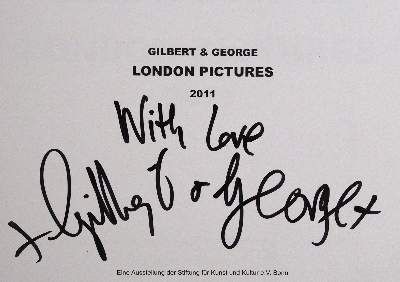 GILBERT & GEORGE
LONDON PICTURES
2011
With Love
x Gilbert & George x
Eine Ausstellung der Stiftung für Kunst und Kultur e.V. Bonn